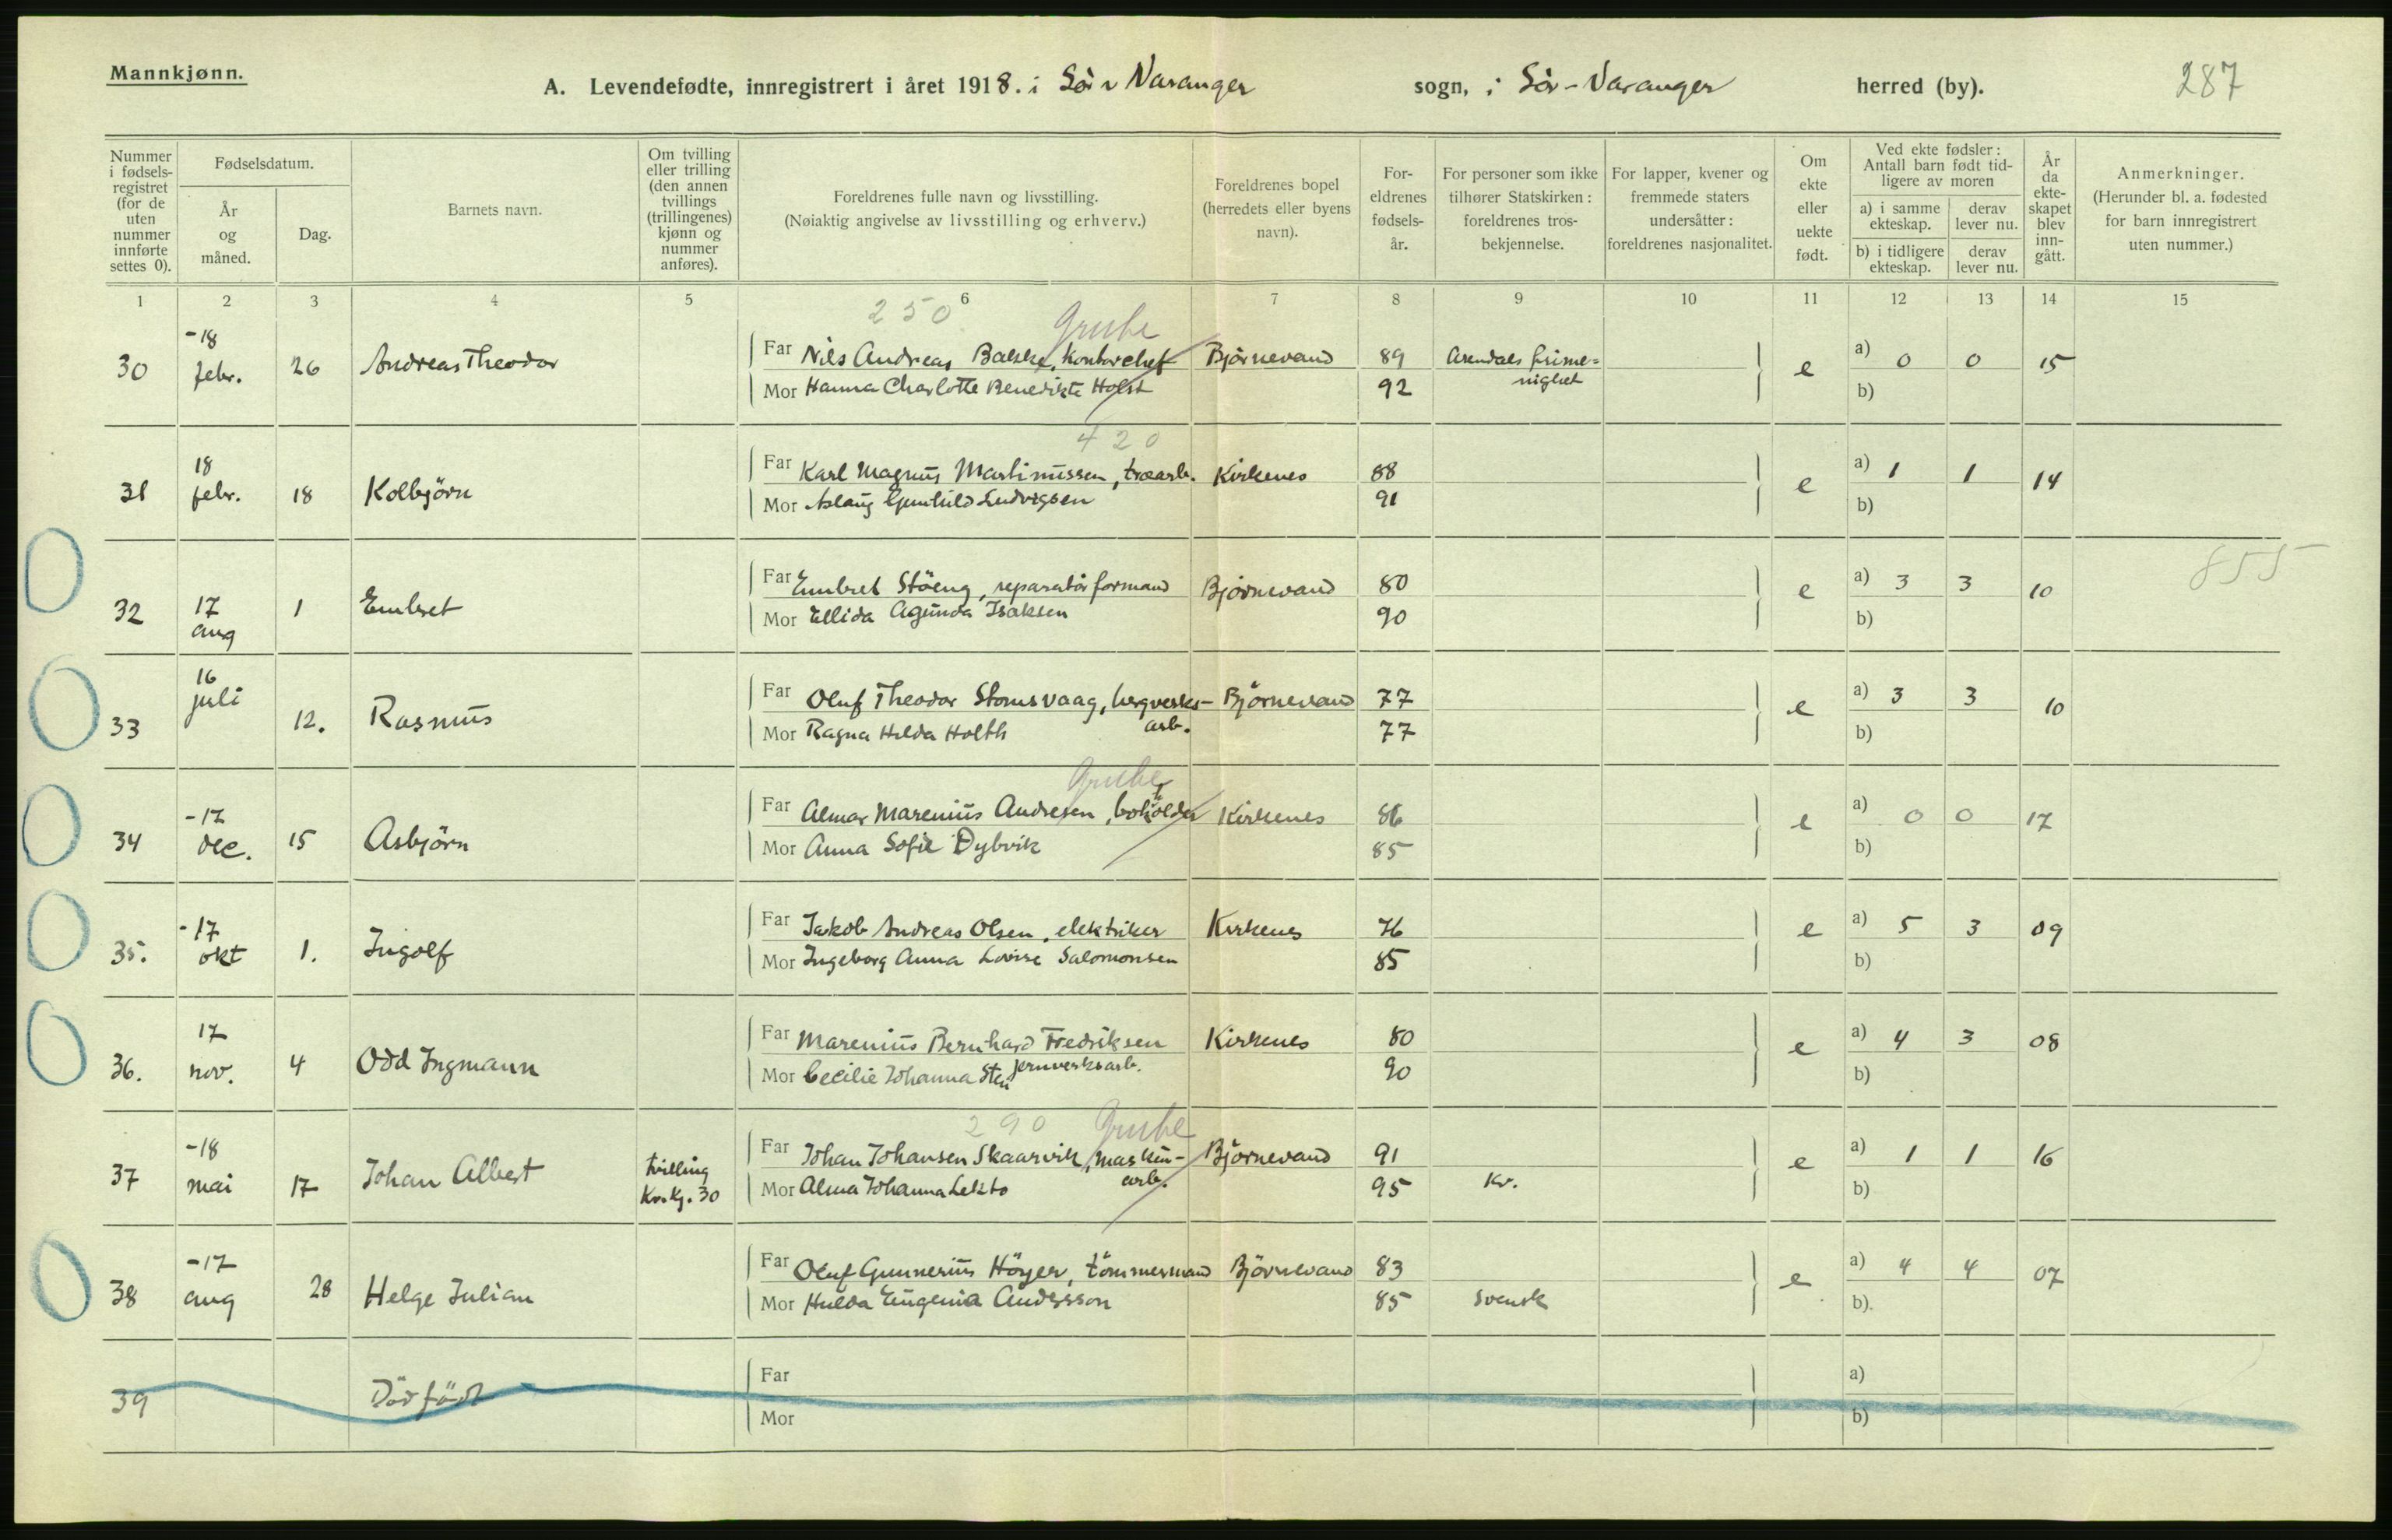 Mannkjønn.
A. Levendefødte, innregistrert i året 1918. i Sör Varanger sogn, i Sör-Varanger herred (by).
287
Nummer i fødsels-registret (for de uten nummer innførte settes 0).
Fødselsdatum.
År og måned.
Dag.
Barnets navn.
Om tvilling eller trilling (den annen tvillings (trillingenes) kjønn og nummer anføres).
Foreldrenes fulle navn og livsstilling.
(Nøiaktig angivelse av livsstilling og erhverv.)
Foreldrenes bopel (herredets eller byens navn).
For-eldrenes fødsels-år.
For personer som ikke tilhører Statskirken: foreldrenes tros-bekjennelse.
For lapper, kvener og fremmede staters undersåtter: foreldrenes nasjonalitet.
Om ekte eller uekte født.
Ved ekte fødsler: Antall barn født tid-ligere av moren
a) i samme ekteskap.
derav lever nu.
b) i tidligere ekteskap.
derav lever nu.
År da ekte-skapet blev inn-gått.
Anmerkninger.
(Herunder bl. a. fødested for barn innregistrert uten nummer.)
1 2 3 4 5 6 7 8 9 10 11 12 13 14 15
250 Grube
30 -18 febr. 26 Andreas Theodor
Far Nils Andreas Balske, kontorchef Björnevand 89 Arendals frime-nighet e a) 0 0 15
Mor Hanna Charlotte Benedikte Holst 92 b)
420
31 18 febr. 18 Kolbjörn
Far Karl Magnus Martinussen, træarb. Kirkenes 88 e a) 1 1 14
Mor Aslaug Gunhild Ludvigsen 91 b)
855
32 17 aug 1 Embret
Far Embret Stöeng, reparatörformand Björnevand 80 e a) 3 3 10
Mor Ellida Agunda Isaksen 90 b)
33 16 juli 12. Rasmus
Far Oluf Theodor Stomsvaag, bergverks-arb. Björnevand 77 e a) 3 3 10
Mor Ragna Hilda Holth 77 b)
Grube
34 -17 dec. 15 Asbjörn
Far Almar Marenius Andresen, bokholder Kirkenes 86 e a) 0 0 17
Mor Anna Sofie Dybvik 85 b)
35. -17 okt 1. Ingolf
Far Jakob Andreas Olsen, elektriker Kirkenes 76 e a) 5 3 09
Mor Ingeborg Anna Lovise Salomonsen 85 b)
36. 17 nov. 4 Odd Ingmann
Far Marenius Bernhard Fredriksen Kirkenes 80 e a) 4 3 08
jernverksarb.
Mor Cecilie Johanna Sten 90 b)
290 Grube
37 -18 mai 17 Johan Albert tvilling Kv.kj. 30
Far Johan Johansen Skaarvik, maskin-arb. Björnevand 91 e a) 1 1 16
Mor Alma Johanna Lekto 95 Kv. b)
38 -17 aug 28 Helge Julian
Far Oluf Gunnerius Höyer, tömmermand Björnevand 83 e a) 4 4 07
Mor Hulda Eugenia Andersson 85 svensk b).
39 Dödfödt
Far a)
Mor b)